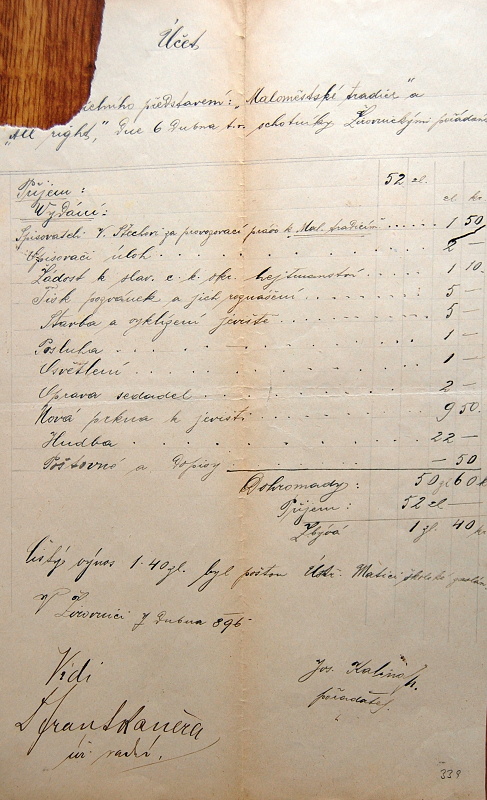 Účet
představení: „Maloměstské tradice“ a
„All right“, dne 6 Dubna t.r. Žirovnickými
Příjem: 52 zl.
Vydání: zl. kr.
Spisovateli V. Štechovi za provozovací právo k Mal. tradicím 1 50
Opisovači úloh 2 —
Žádost k slav. c. k. okr. hejtmanství 1 10
Tisk pozvánek a jich roznášení 5 —
Stavba a vyklizení jeviště 5 —
Posluha 1 —
Osvětlení 1 —
Oprava sedadel 2 —
Nová prkna k jevišti 9 50
Hudba 22 —
Poštovné a dopisy — 50
Dohromady: 50 zl 60 k
Příjem: 52 zl —
Zbývá 1 zl. 40 kr
Čistý výnos 1·40 zl. byl poštou Ústř. Matici školské
V Žirovnici 7 Dubna 896
Vidi
Jos.
pořadatel.
339